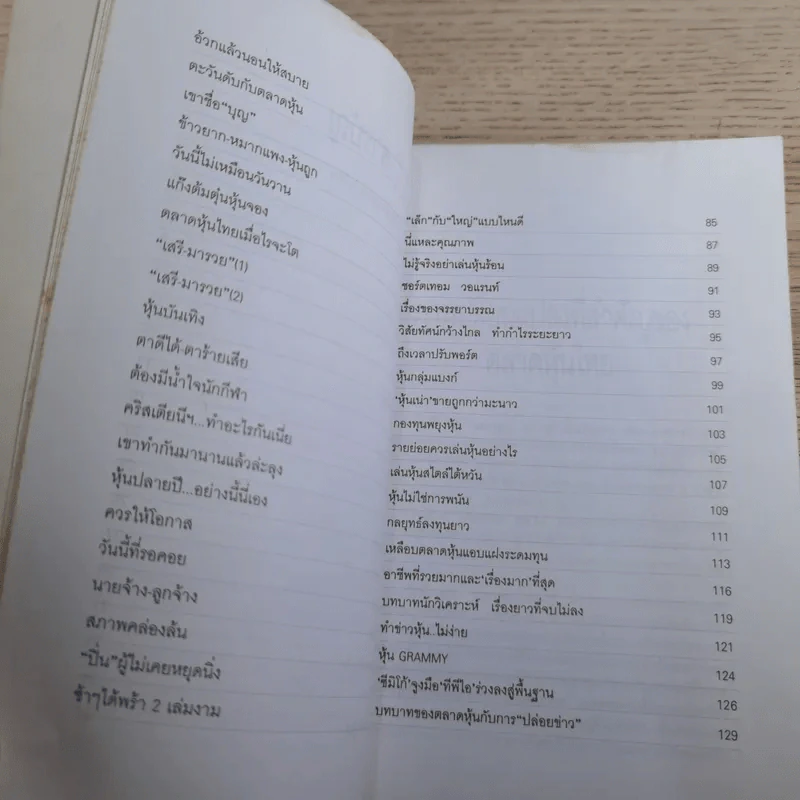 อ้วกแล้วนอนให้สบาย
ตะวันดับกับตลาดหุ้น
เขาชื่อ“บุญ”
ข้าวยาก-หมากแพง-หุ้นถูก
วันนี้ไม่เหมือนวันวาน
แก๊งต้มตุ๋นหุ้นจอง
ตลาดหุ้นไทยเมื่อไรจะโต
“เสรี-มารวย”(1)
“เสรี-มารวย”(2)
หุ้นบันเทิง
ตาดีได้-ตาร้ายเสีย
ต้องมีน้ำใจนักกีฬา
คริสเตียนีฯ...ทำอะไรกันเนี่ย
เขาทำกันมานานแล้วล่ะลุง
หุ้นปลายปี...อย่างนี้นี่เอง
ควรให้โอกาส
วันนี้ที่รอคอย
นายจ้าง-ลูกจ้าง
สภาพคล่องล้น
“ปิ่น”ผู้ไม่เคยหยุดนิ่ง
ช้าๆได้พร้า 2 เล่มงาม
“เล็ก”กับ“ใหญ่”แบบไหนดี 85
นี่แหละคุณภาพ 87
ไม่รู้จริงอย่าเล่นหุ้นร้อน 89
ชอร์ตเทอม วอแรนท์ 91
เรื่องของจรรยาบรรณ 93
วิสัยทัศน์กว้างไกล ทำกำไรระยะยาว 95
ถึงเวลาปรับพอร์ต 97
หุ้นกลุ่มแบงก์ 99
‘หุ้นเน่า’ขายถูกกว่ามะนาว 101
กองทุนพยุงหุ้น 103
รายย่อยควรเล่นหุ้นอย่างไร 105
เล่นหุ้นสไตล์ไต้หวัน 107
หุ้นไม่ใช่การพนัน 109
กลยุทธ์ลงทุนยาว 111
เหลือบตลาดหุ้นแอบแฝงระดมทุน 113
อาชีพที่รวยมากและ‘เรื่องมาก’ที่สุด 116
บทบาทนักวิเคราะห์ เรื่องยาวที่จบไม่ลง 119
ทำข่าวหุ้น..ไม่ง่าย 121
หุ้น GRAMMY 124
‘ซีมิโก้’จูงมือ‘ทีพีไอ’ร่วงลงสู่พื้นฐาน 126
บทบาทของตลาดหุ้นกับการ“ปล่อยข่าว” 129